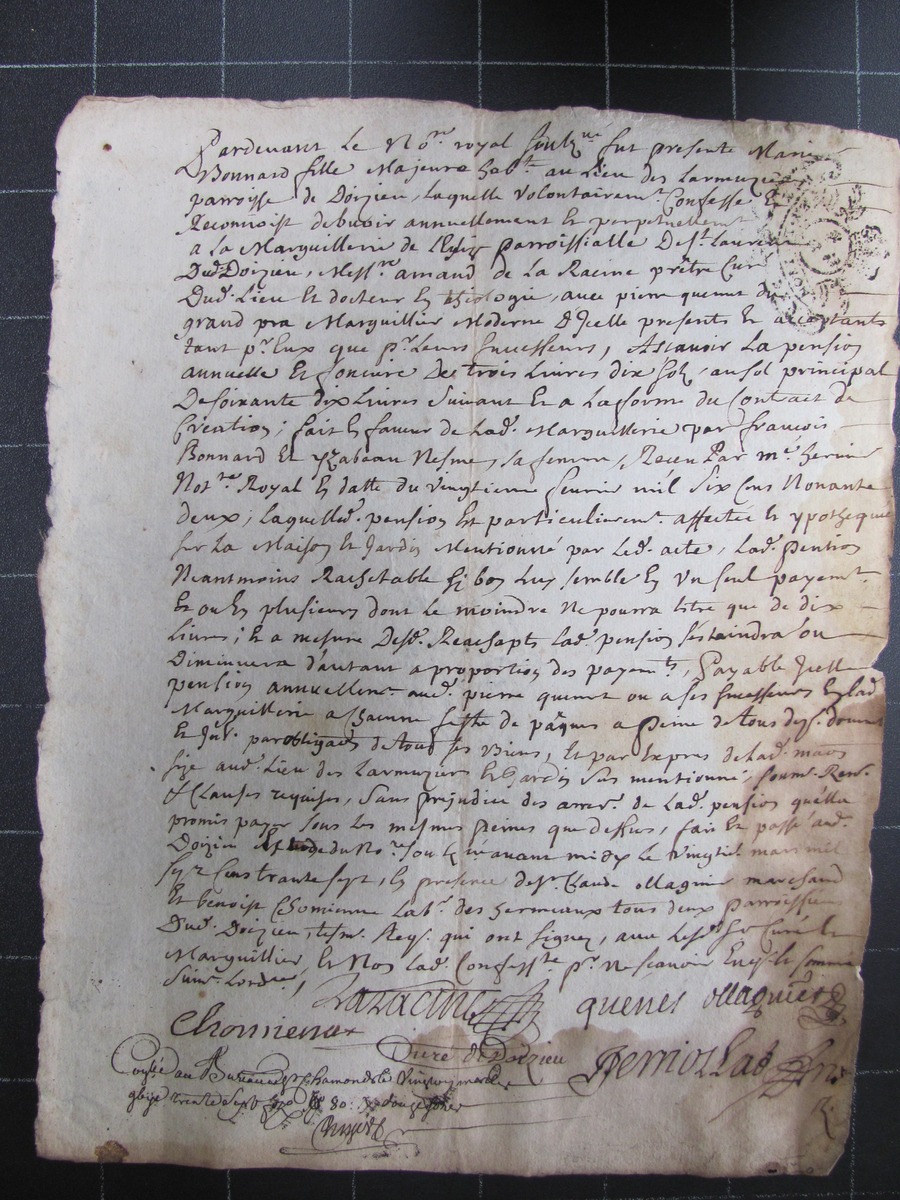 Pardevant Le No.re royal soubz.né fut presente Marie
Bonnard fille Majeure hab.te au Lieu des Larmuzieres
parroisse de Doizieu, Laquelle volontairem.t Confesse Et
Reconnoist debvoir annuellement Et perpetuellement
a La Marguillerie de L'Eglize parroissialle De S.t Laurent
Dud. Doizieu, Mess.re amand de La Racine prêtre Curé
Dud. Lieu Et docteur En thiologie, avec pierre quenet du
grand pra Marguillier Moderne D'Jcelle presents Et acceptants
tant p.r Eux que p.r Leurs successeurs, Ascavoir La pension
annuelle Et fonciere De trois Livres dix solz, au sol principal
De soixante dix Livres suivant Et a La forme du Contract de
Création; fait En faveur de Lad. Marguillerie par françois
Bonnard Et Yzabeau Nesme sa femme, Receu Par m.e
Not.re Royal En datte du vingtieme feuvrier mil six Cens Nonante
deux, Laquelle d. pension Est particulierem.t affectée Et ypothequée
sur La Maison Et Jardin Mentionné par Led. acte, Lad. Pention
Neantmoins Rachetable si bon Luy semble En Un seul payem.t
Et ou En plusieurs dont Le moindre Ne pourra Etre que de dix
Livres; Et a mesure Desd. Reachapts Lad. pension s'éstaindra ou
Diminuera d'autant a proportion des payem.ts, Payable Jcelle
pension annuellem.t aud. pierre quenet ou a ses successeurs En Lad.
Marguillerie a Chacune feste de pâques a peine de tous desp. dommes
Et Int. par obligaon de tous ses Biens, Et par Expres de Lad. maison
size aud. Lieu des Larmuzieres Et Jardin sus mentionné, soum. Ren.
& Clauses requises, sans prejudice des arrer. de Lad. pension quélle
promis payer sous Les mesmes peines que dessus, fait Et passé aud.
Doizieu Estude du No.re soubz.né avant midy Le vingtie. mars mil
sept Cens trante sept, En presence de s.r Claude ollagnier marchand
Et benoist Chomienne Lab.r des hermeaux tous deux parroissiens
Dud. Doizieu, tesm. Reqs. qui ont signez, avec Lesd. Sr Curé Et
Marguillier, Et Non Lad. Confess.te p.r Ne scavoir Enqs. Et sommée
suiv. L'ord.ce,
Laracine quenet ollagnier
Chomienne Curé de Doizieu
Controllé au Bureau de St Chamond le Vingt mars